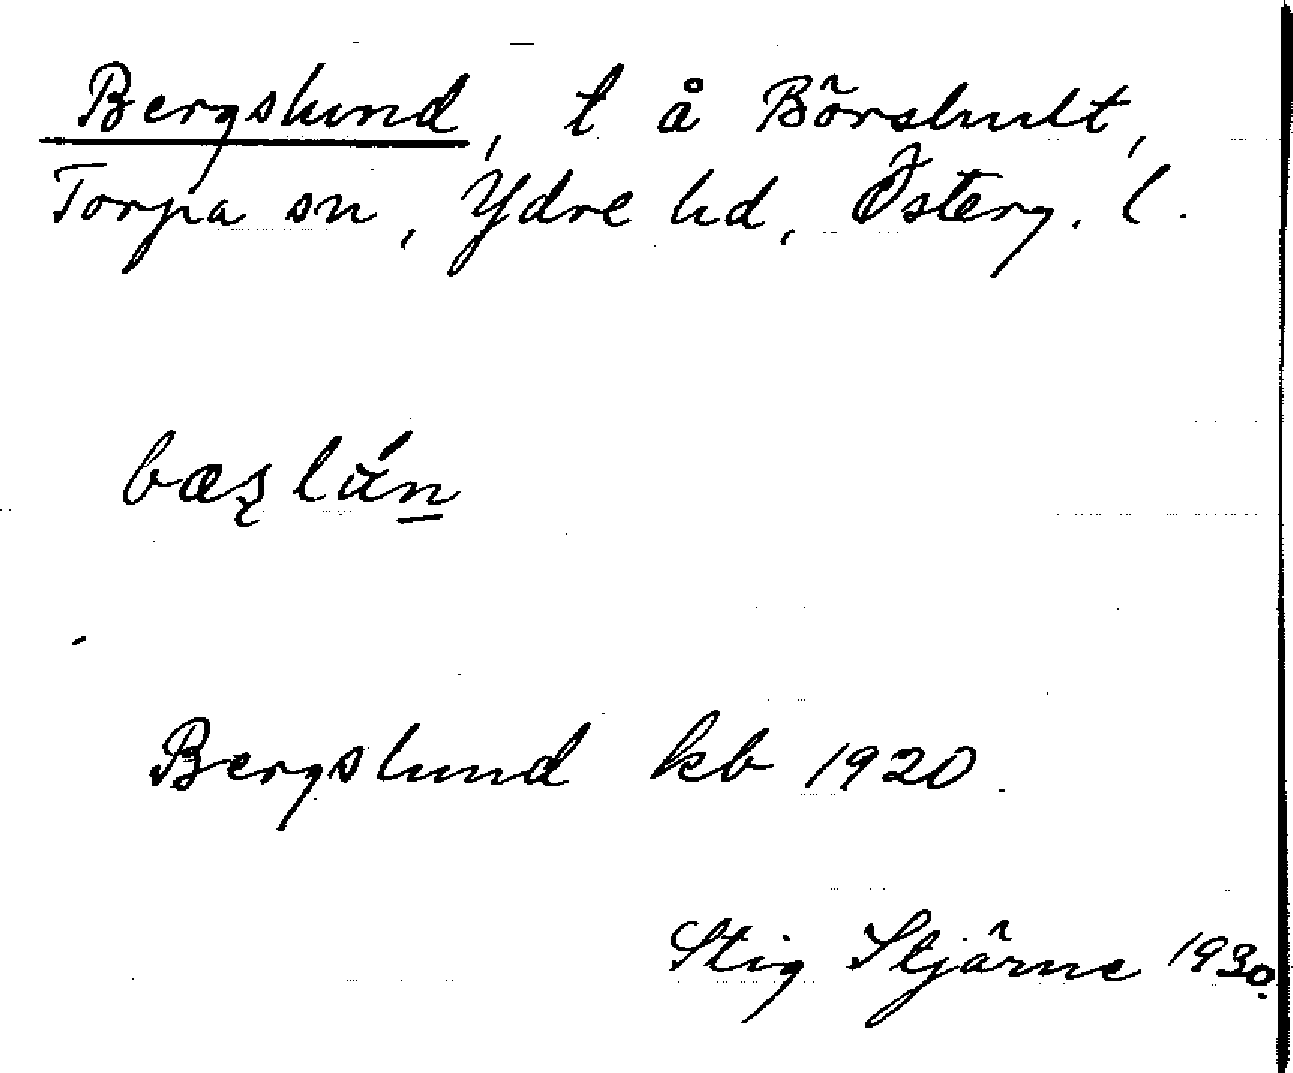 Bergslund, t. å Börshult,
Torpa sn, Ydre hd, Österg. l.
Bergslund kb 1920.
Stig Stjärne 1930.